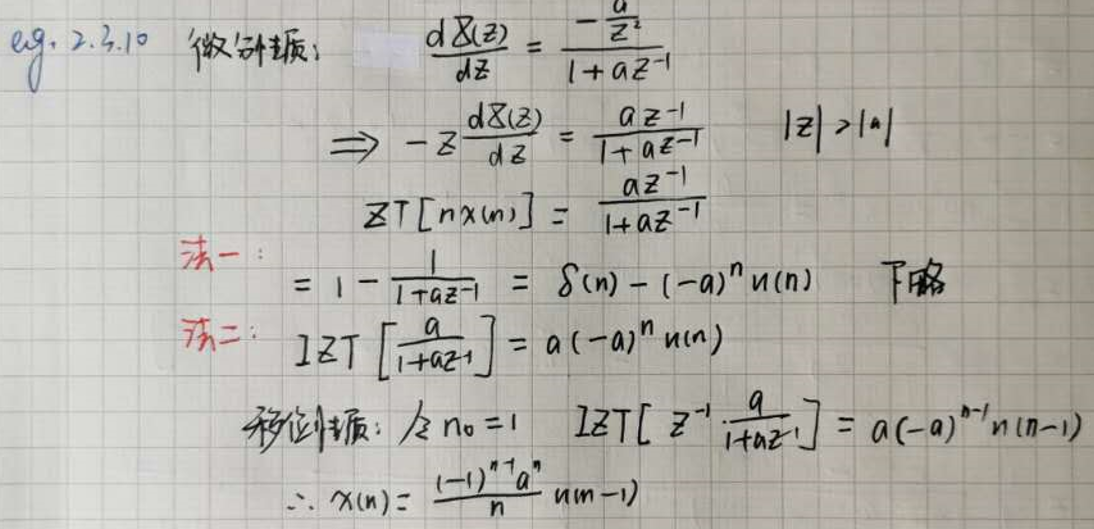 eg. 2.3.10 微分性质: dX(z)/dz = (-a/z²)/(1+az⁻¹)
⇒ -z dX(z)/dz = az⁻¹/(1+az⁻¹) |z|>|a|
ZT[nx(n)] = az⁻¹/(1+az⁻¹)
法一: = 1 - 1/(1+az⁻¹) = δ(n) - (-a)ⁿ u(n) 下略
法二: IZT[a/(1+az⁻¹)] = a(-a)ⁿ u(n)
移位性质: 令 n₀=1 IZT[z⁻¹·a/(1+az⁻¹)] = a(-a)ⁿ⁻¹ u(n-1)
∴ x(n) = (-1)ⁿ⁻¹aⁿ/n u(n-1)